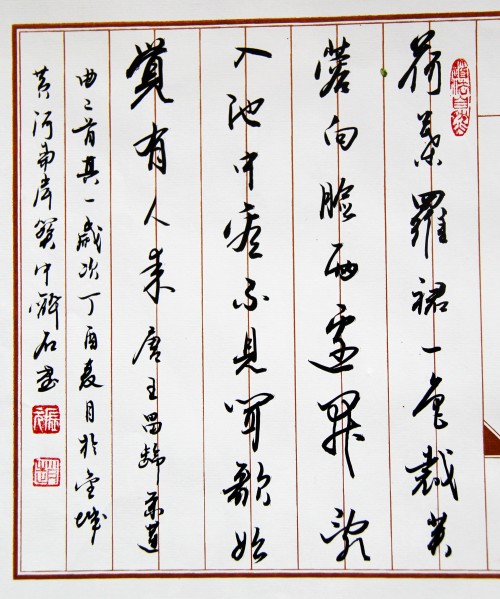 道法自然
荷葉羅裙一色裁芙
蓉向臉兩邊開亂
入池中看不見聞歌始
覺有人來 唐王昌齡采蓮
曲二首其一歲次丁酉夏月於金城
黃河南岸中石書